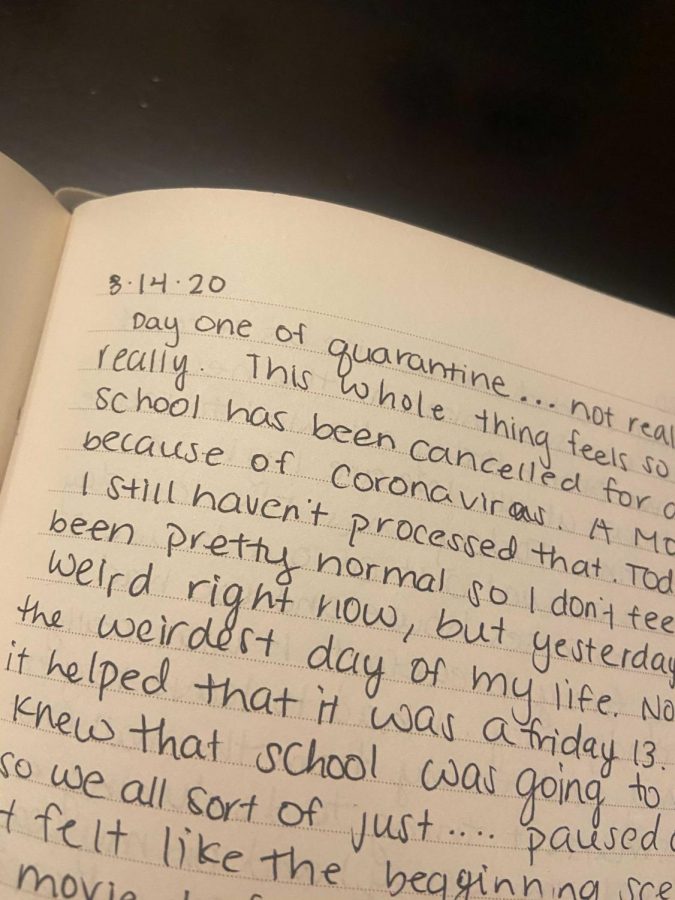 3.14.20
Day one of quarantine... not real
really. This whole thing feels so
school has been cancelled for
because of coronavirus. A
I still haven't processed that.
been pretty normal so I don't
weird right now, but yesterday
the weirdest day of my life.
it helped that it was a friday 13.
knew that school was going to
so we all sort of just.... paused
felt like the beggining
movie